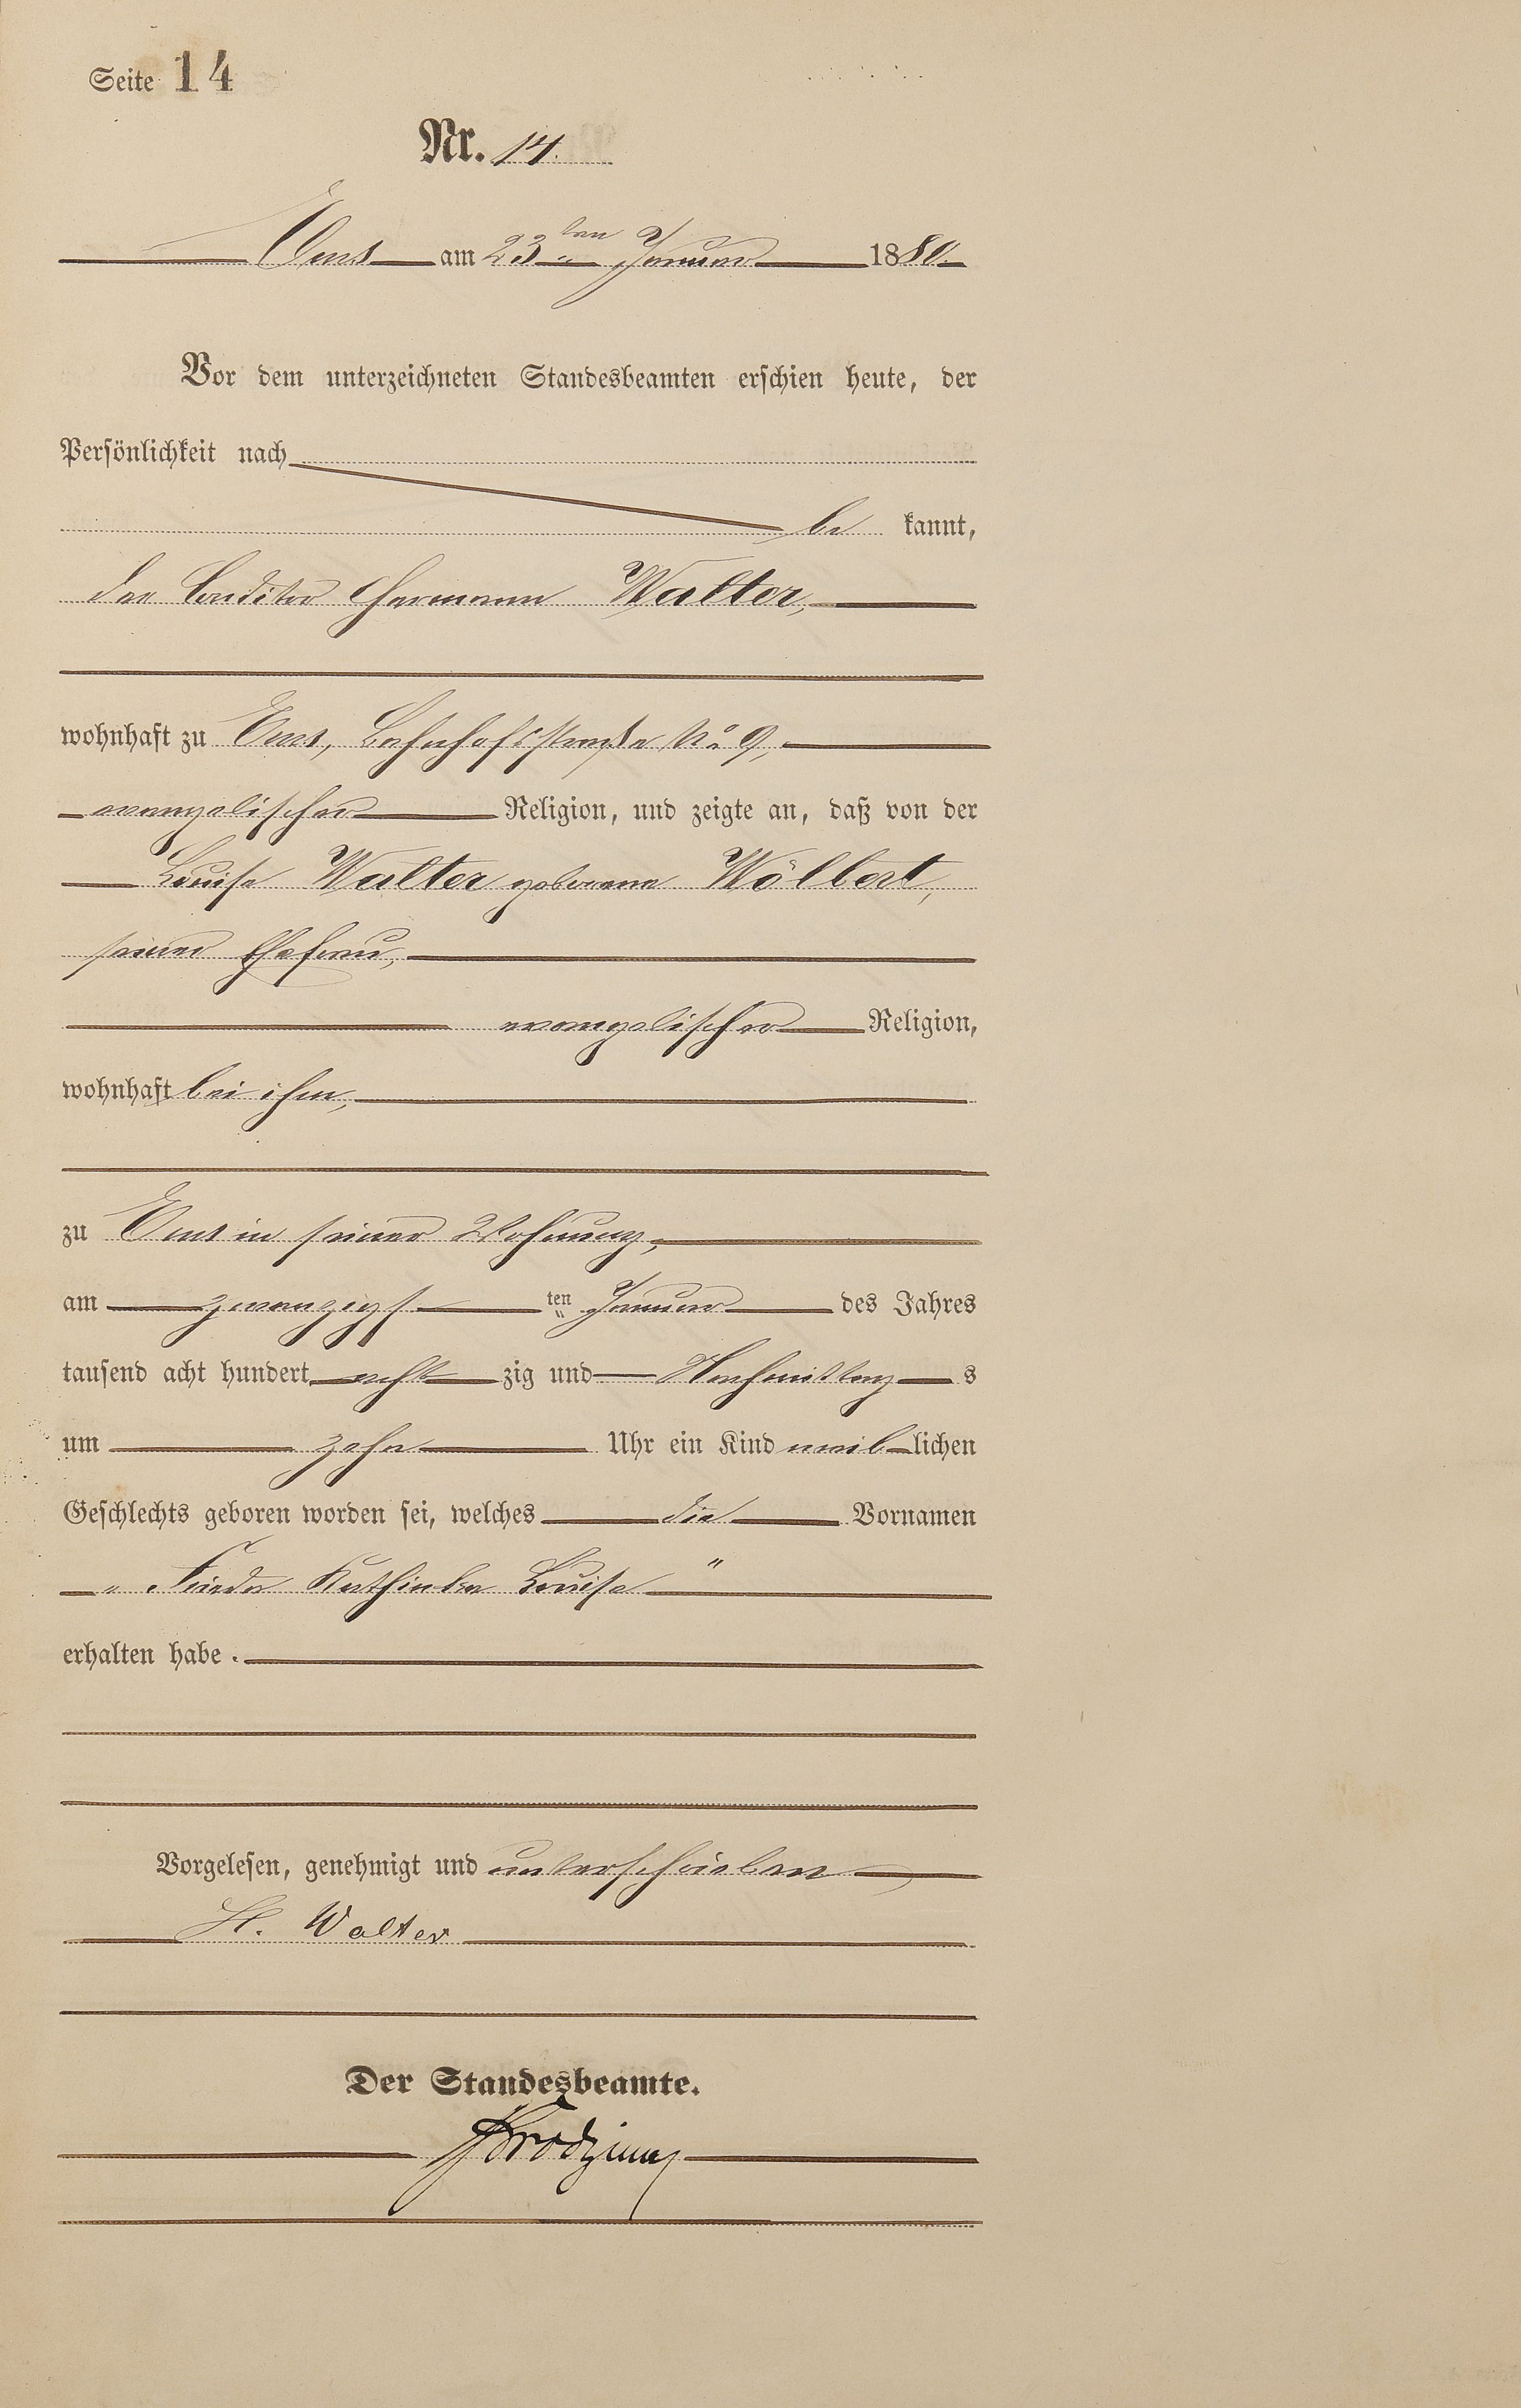 Seite 14
Nr. 14.
Ems am 23ten Januar 1880.
Vor dem unterzeichneten Standesbeamten erschien heute, der
Persönlichkeit nach
be kannt,
der Conditor Hermann Walter,
wohnhaft zu Ems, Bahnhofsstraße No 9,
evangelischer Religion, und zeigte an, daß von der
Louise Walter geborene Wölbert,
seiner Ehefrau,
evangelischer Religion,
wohnhaft bei ihm,
zu Ems in seiner Wohnung,
am zwanzigsten Januar des Jahres
tausend acht hundert acht zig und Nachmittags
um zehn Uhr ein Kind weiblichen
Geschlechts geboren worden sei, welches die Vornamen
" Frieda Kathinka Louise "
erhalten habe.
Vorgelesen, genehmigt und unterschrieben
H. Walter
Der Standesbeamte.